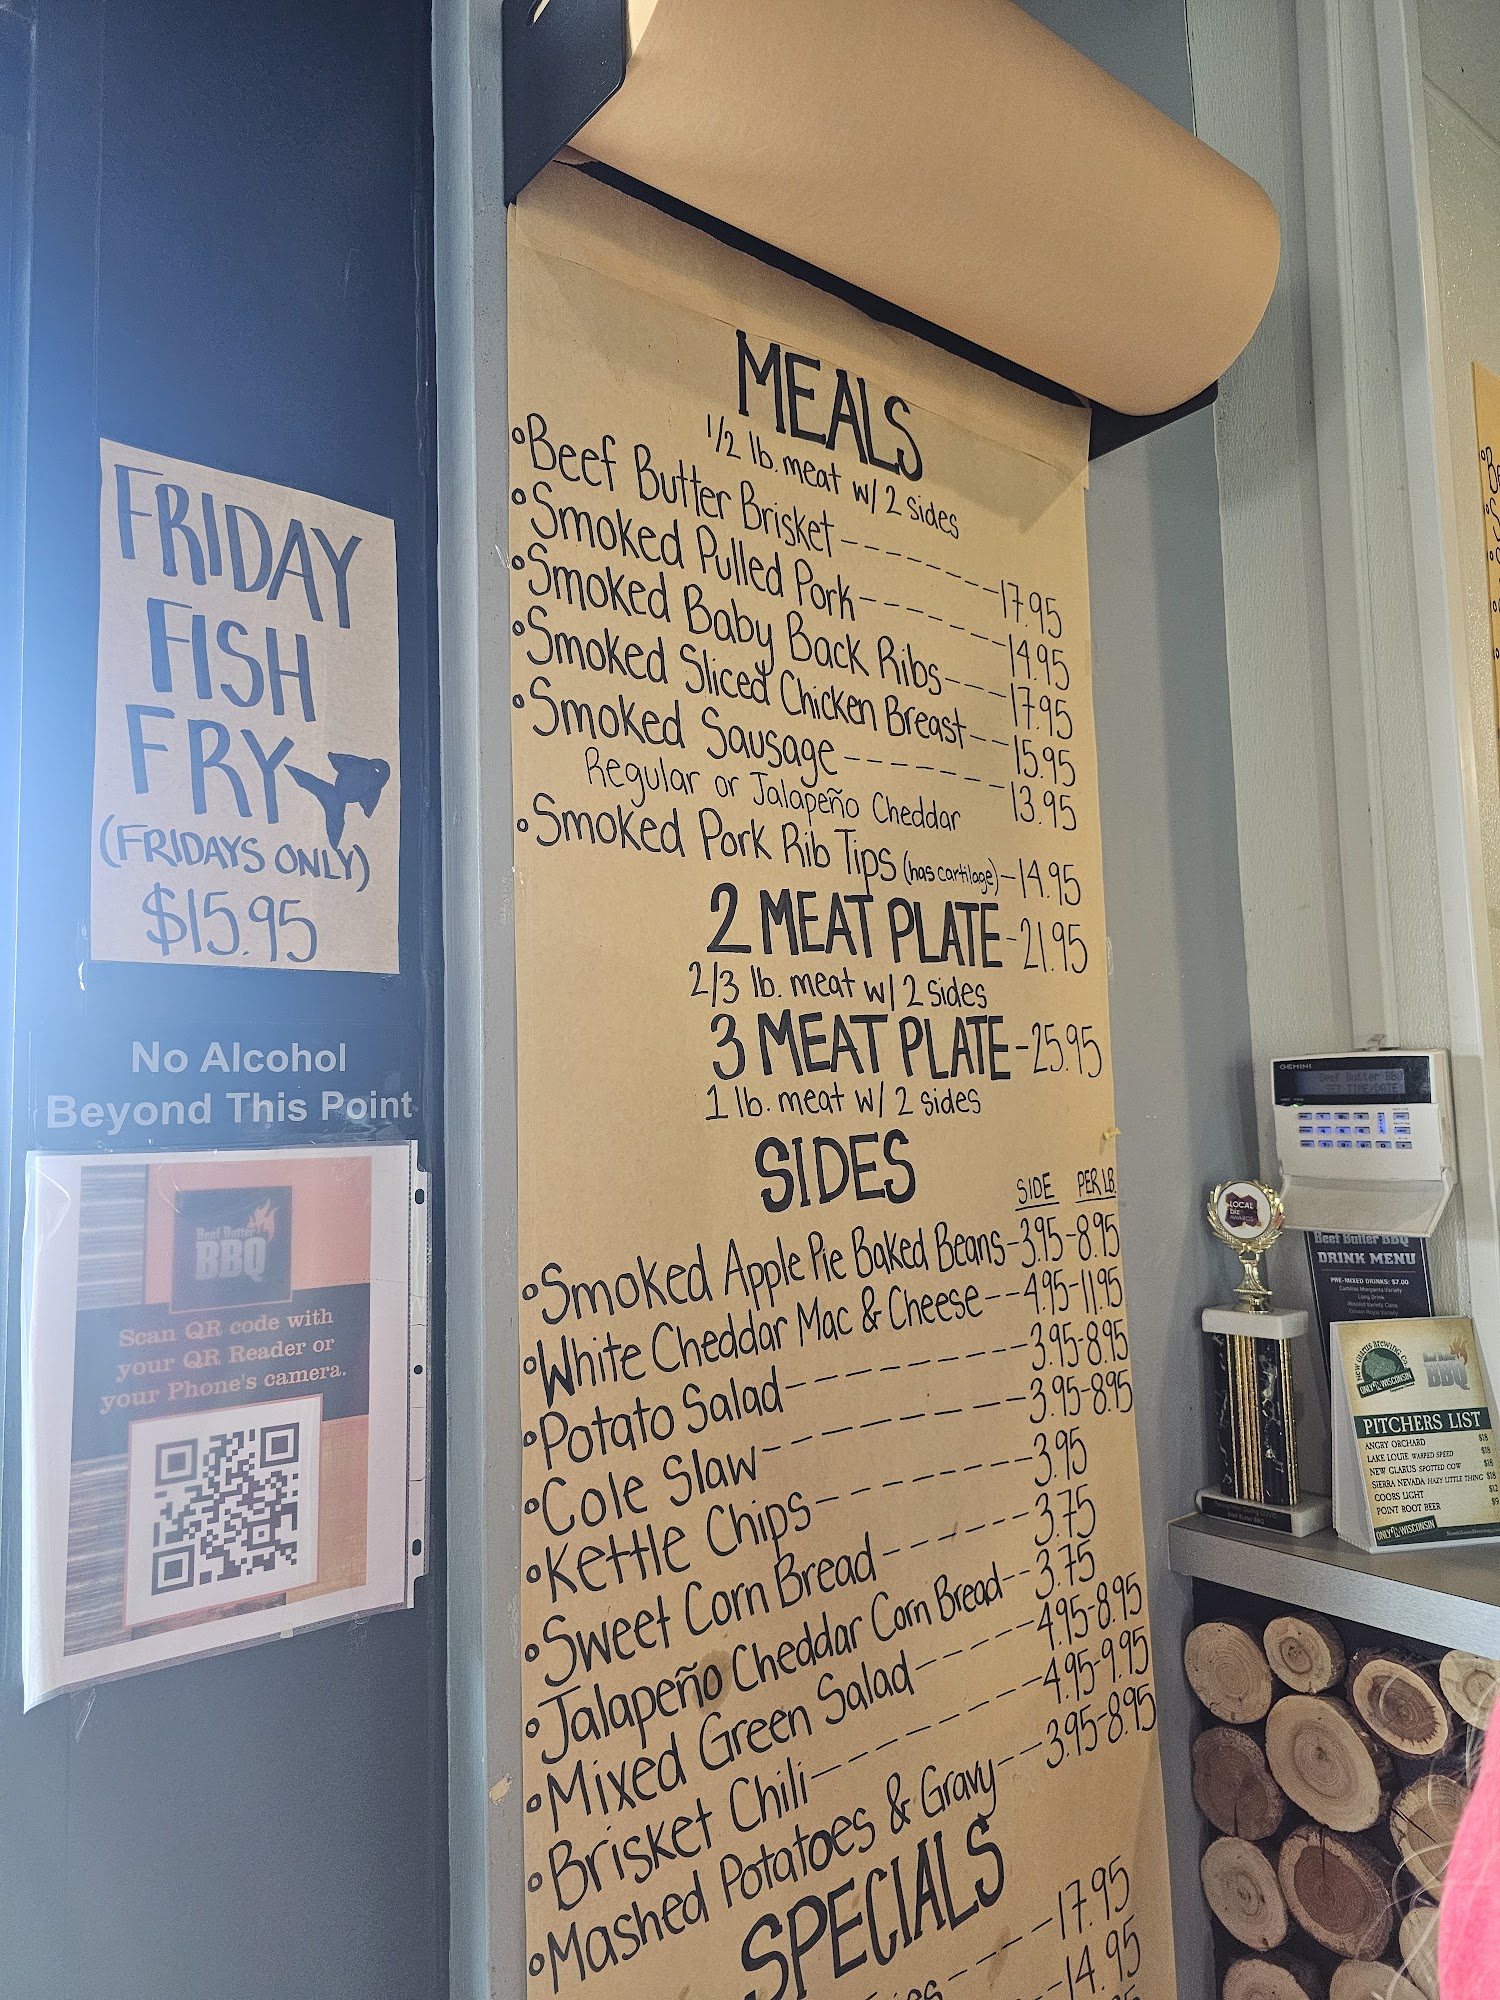 FRIDAY
FISH
FRY
(FRIDAYS ONLY)
$15.95
No Alcohol
Beyond This Point
Beef Butter
BBQ
Scan QR code with
your QR Reader or
your Phone's camera.
MEALS
1/2 lb. meat w/ 2 sides
Beef Butter Brisket 17.95
Smoked Pulled Pork 14.95
Smoked Baby Back Ribs 17.95
Smoked Sliced Chicken Breast 15.95
Smoked Sausage 13.95
Regular or Jalapeño Cheddar
Smoked Pork Rib Tips (has cartilage) 14.95
2 MEAT PLATE - 21.95
2/3 lb. meat w/ 2 sides
3 MEAT PLATE - 25.95
1 lb. meat w/ 2 sides
SIDES
SIDE PER LB.
Smoked Apple Pie Baked Beans - 3.95 - 8.95
White Cheddar Mac & Cheese - 4.95 - 11.95
Potato Salad 3.95 - 8.95
Cole Slaw 3.95 - 8.95
Kettle Chips 3.95
Sweet Corn Bread 3.75
Jalapeño Cheddar Corn Bread 3.75
Mixed Green Salad 4.95 - 8.95
Brisket Chili 4.95 - 9.95
Mashed Potatoes & Gravy 3.95 - 8.95
SPECIALS
17.95
14.95
GEMINI
Beef Butter BB
SET TIME/DATE
LOCAL
biz
AWARDS
Beef Butter BBQ
Beef Butter BBQ
DRINK MENU
PRE-MIXED DRINKS: $7.00
NEW GLARUS BREWING CO.
ONLY IN WISCONSIN
BBQ
PITCHERS LIST
ANGRY ORCHARD $18
LAKE LOUIE WARPED SPEED $18
NEW GLARUS SPOTTED COW $18
SIERRA NEVADA HAZY LITTLE THING $18
COORS LIGHT $12
POINT ROOT BEER $9
ONLY IN WISCONSIN